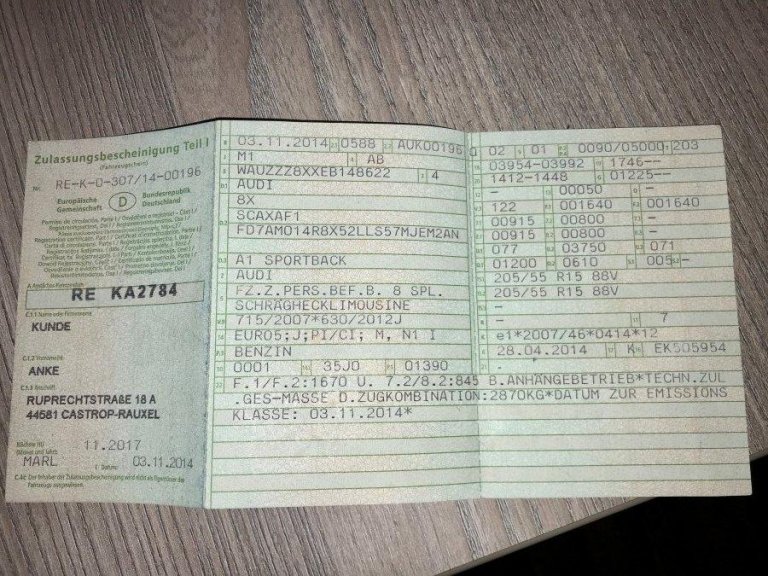 Zulassungsbescheinigung Teil I
(Fahrzeugschein)
Nr. RE-K-O-307/14-00196
Europäische Gemeinschaft D Bundesrepublik Deutschland
RE KA2784
C.1.1 Name oder Firmenname
KUNDE
C.1.2 Vorname(n)
ANKE
C.1.3 Anschrift
RUPRECHTSTRAßE 18 A
44581 CASTROP-RAUXEL
11.2017
MARL 03.11.2014
03.11.2014 0588 AUK00196
M1 AB
WAUZZZ8XXEB148622 4
AUDI
8X
SCAXAF1
FD7AM014R8X52LLS57MJEM2AN
A1 SPORTBACK
AUDI
FZ.Z.PERS.BEF.B. 8 SPL.
SCHRÄGHECKLIMOUSINE
715/2007*630/2012J
EURO5;J;PI/CI; M, N1 I
BENZIN
0001 35J0 01390
F.1/F.2:1670 U. 7.2/8.2:845 B.ANHÄNGEBETRIEB*TECHN.ZUL
.GES-MASSE D.ZUGKOMBINATION:2870KG*DATUM ZUR EMISSIONS
KLASSE: 03.11.2014*
02 01 0090/05000 203
03954-03992 1746--
1412-1448 01225--
- 00050 -
122 001640 001640
00915 00800 -
00915 00800 -
077 03750 071
01200 0610 005 -
205/55 R15 88V
205/55 R15 88V
-
- 7
e1*2007/46*0414*12
28.04.2014 K EK505954
-